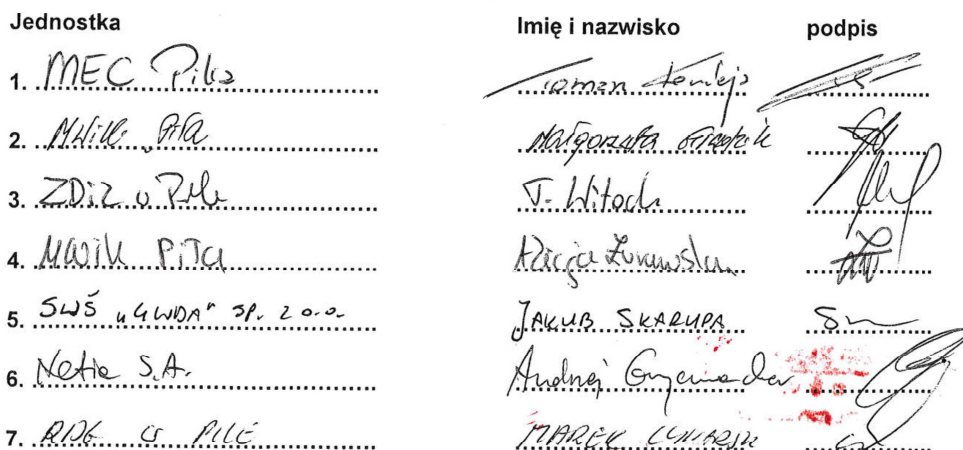 Jednostka Imię i nazwisko podpis
1. MEC Piła
2. MWiK Piła Małgorzata
3. ZDiZ w Pile T. Witoch
4. MWiK Piła Alicja Żurawska
5. SWŚ "GWDA" SP. z o.o. JAKUB SKARUPA
6. Netia S.A. Andrzej
7. w PILE MAREK